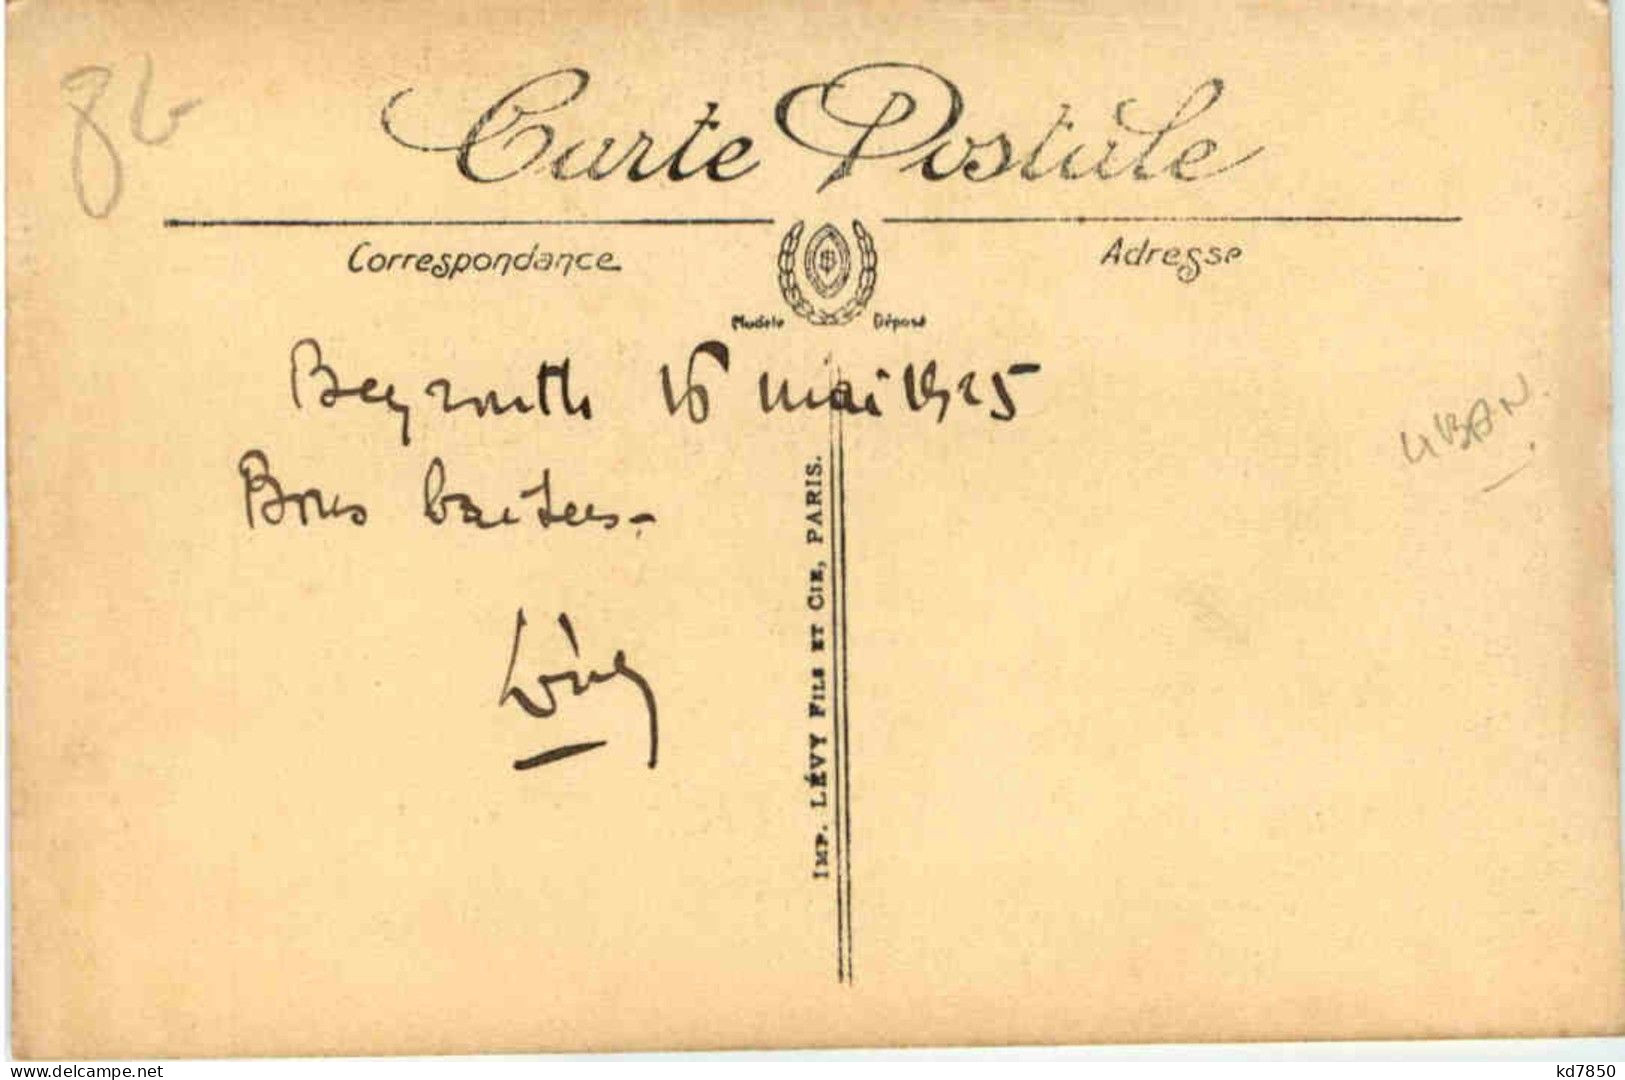 8L
Carte Postale
Correspondance
Adresse
Modèle Déposé
Beyrouth 16 mai 1925
Bons baisers -
LIBAN
IMP. LÉVY FILS ET CIE, PARIS.
www.delcampe.net
kd7850